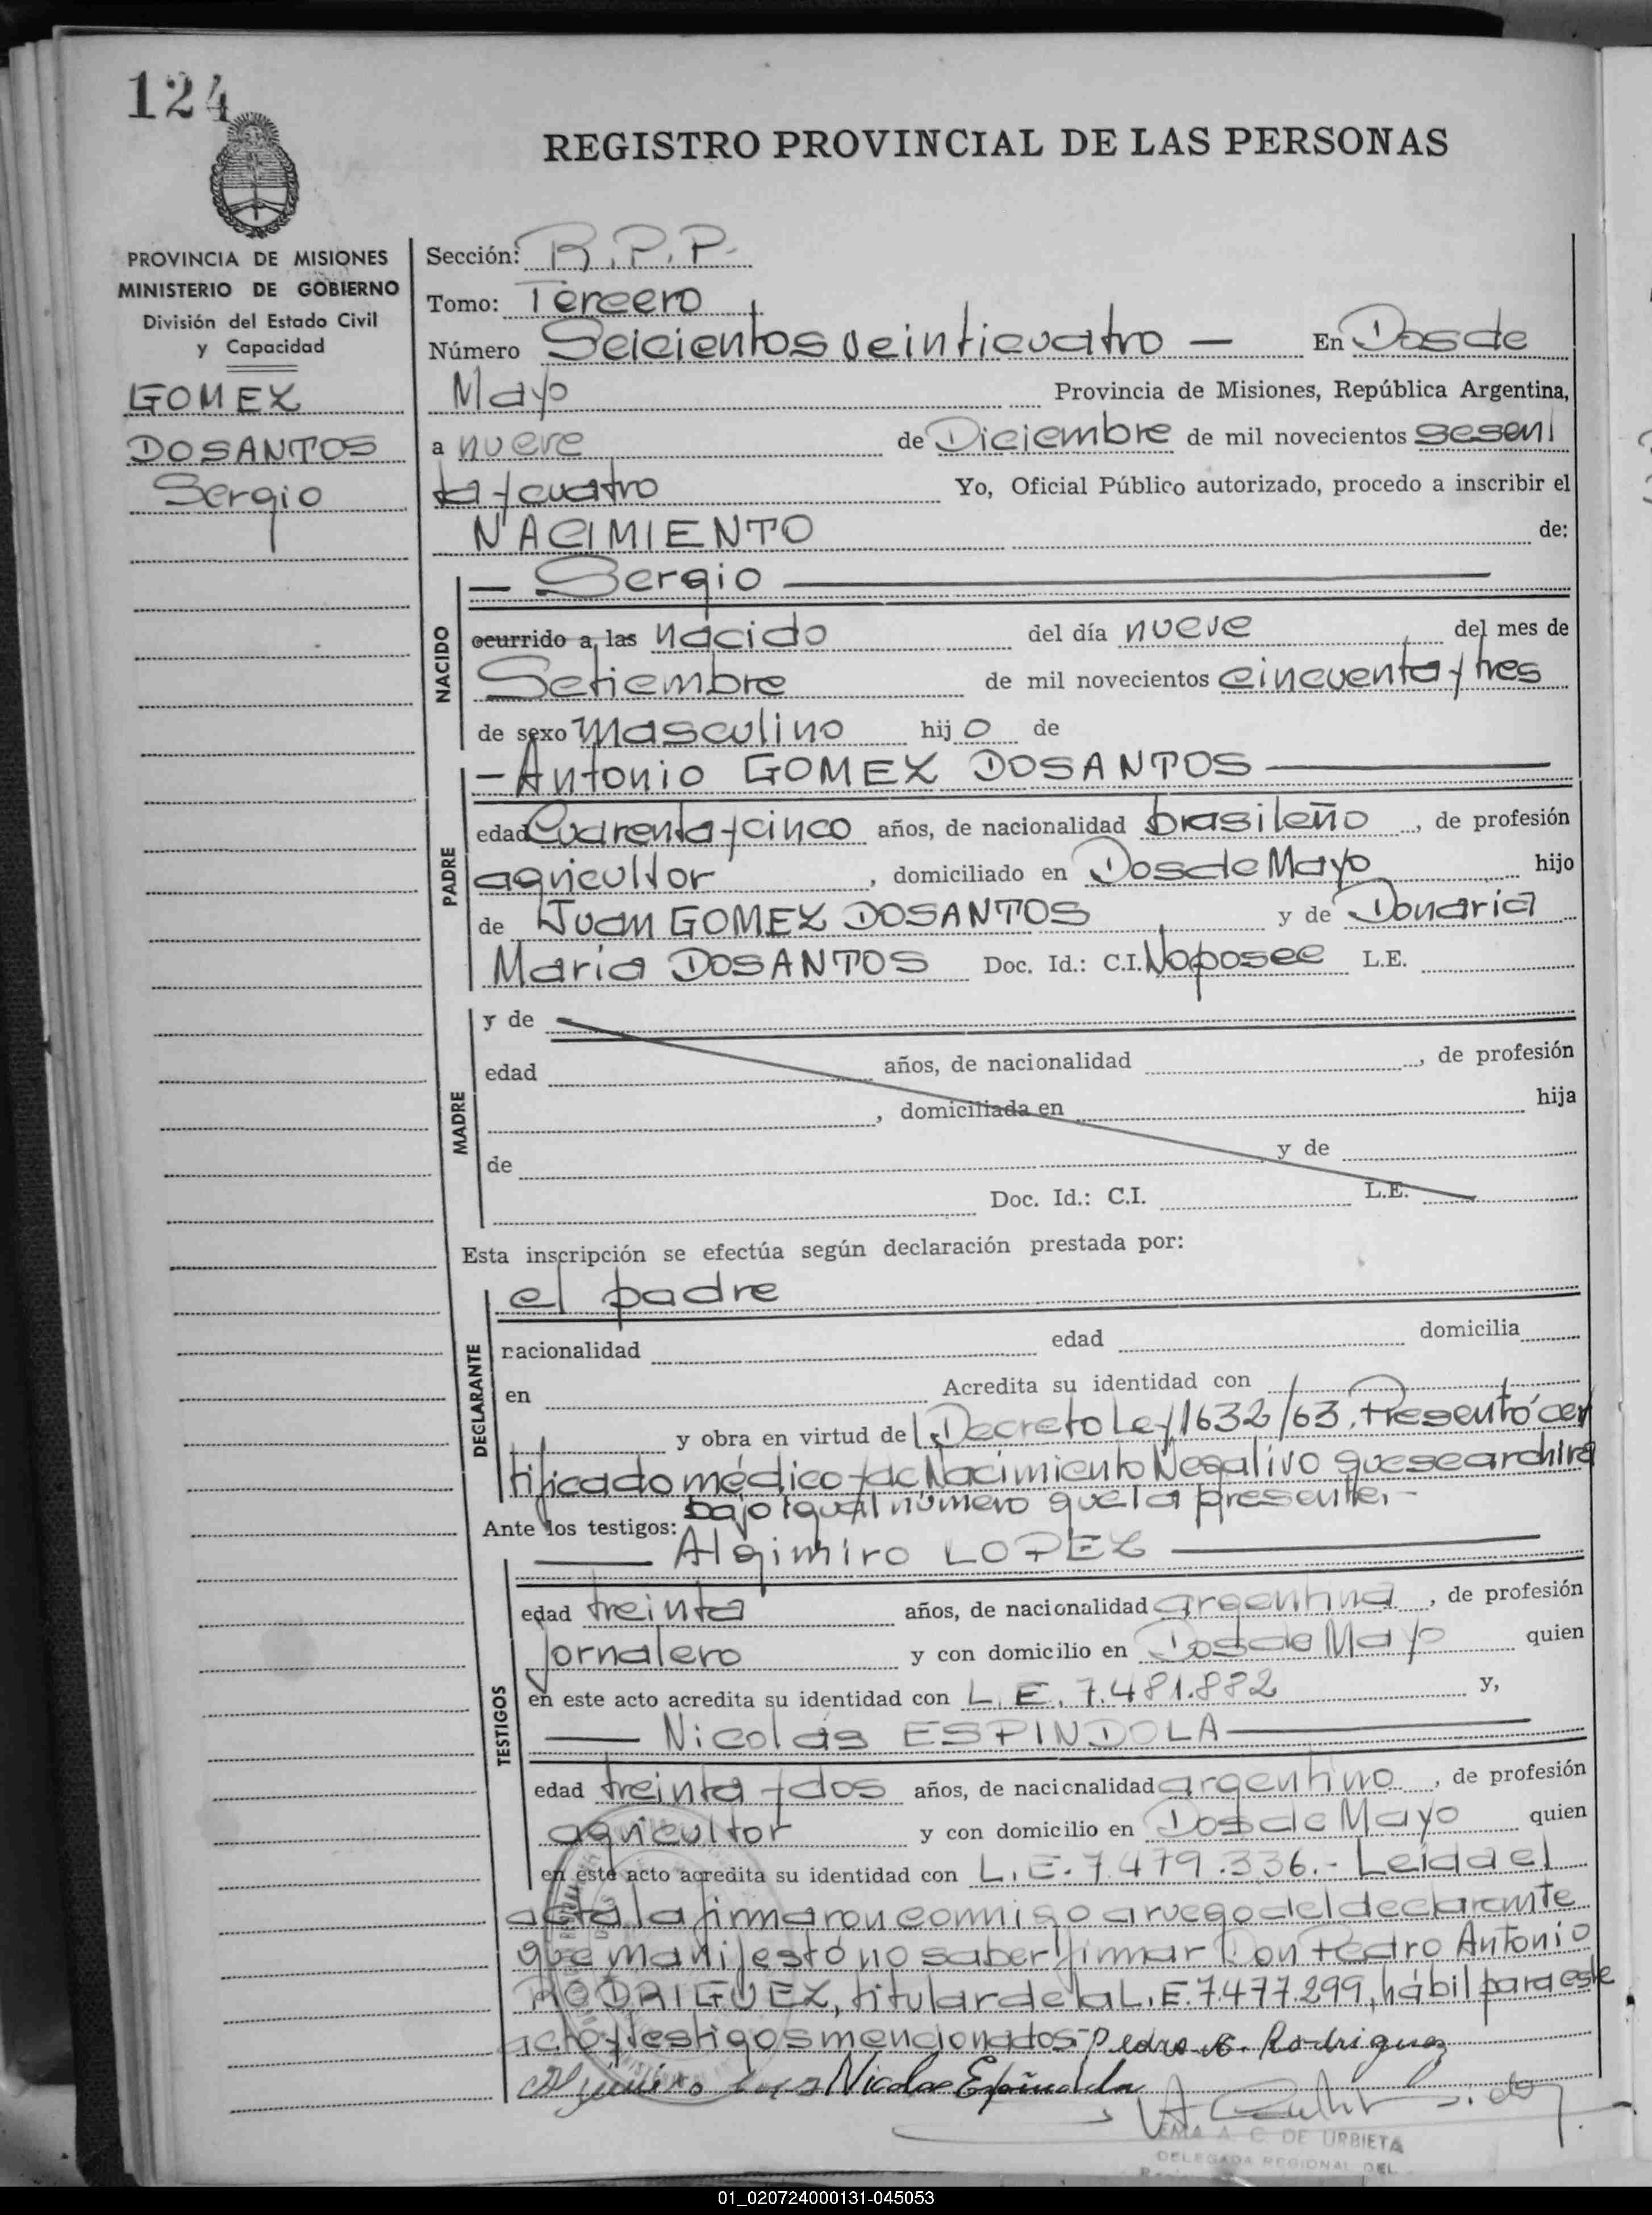 124
REGISTRO PROVINCIAL DE LAS PERSONAS
PROVINCIA DE MISIONES
MINISTERIO DE GOBIERNO
División del Estado Civil
y Capacidad
GOMEZ
DOSANTOS
Sergio
Sección: R.P.P.
Tomo: Tercero
Número Seicientos veinticuatro — En Dos de
Mayo Provincia de Misiones, República Argentina,
a nueve de Diciembre de mil novecientos sesen
ta y cuatro Yo, Oficial Público autorizado, procedo a inscribir el
NACIMIENTO de:
NACIDO
— Sergio —
ocurrido a las nacido del día nueve del mes de
Setiembre de mil novecientos cincuenta y tres
de sexo masculino hijo de
PADRE
— Antonio GOMEZ DOSANTOS —
edad Cuarenta y cinco años, de nacionalidad brasileño, de profesión
agricultor, domiciliado en Dos de Mayo hijo
de Juan GOMEZ DOSANTOS y de Donaria
Maria DOSANTOS Doc. Id.: C.I. No posee L.E.
MADRE
y de
edad años, de nacionalidad , de profesión
, domiciliada en hija
de y de
Doc. Id.: C.I. L.E.
Esta inscripción se efectúa según declaración prestada por:
DECLARANTE
el padre
nacionalidad edad domicilia
en Acredita su identidad con
y obra en virtud de l Decreto Ley 1632/63. Presentó cer
tificado médico y de Nacimiento Negativo que se archiva
bajo igual número que la presente.-
Ante los testigos:
TESTIGOS
— Algimiro LOPEZ —
edad treinta años, de nacionalidad argentina, de profesión
jornalero y con domicilio en Dos de Mayo quien
en este acto acredita su identidad con L.E. 7.481.882 y,
— Nicolás ESPINDOLA —
edad treinta y dos años, de nacionalidad argentino, de profesión
agricultor y con domicilio en Dos de Mayo quien
en este acto acredita su identidad con L.E. 7.479.336.- Leida el
acta la firmaron conmigo a ruego del declarante
que manifestó no saber firmar Don Pedro Antonio
RODRIGUEZ, titular de la L.E. 7.477.299, hábil para este
acto y testigos mencionados.- Pedro A. Rodriguez
Nicolas Espindola
EMA A. C. DE URBIETA
DELEGADA REGIONAL DEL
01_020724000131-045053